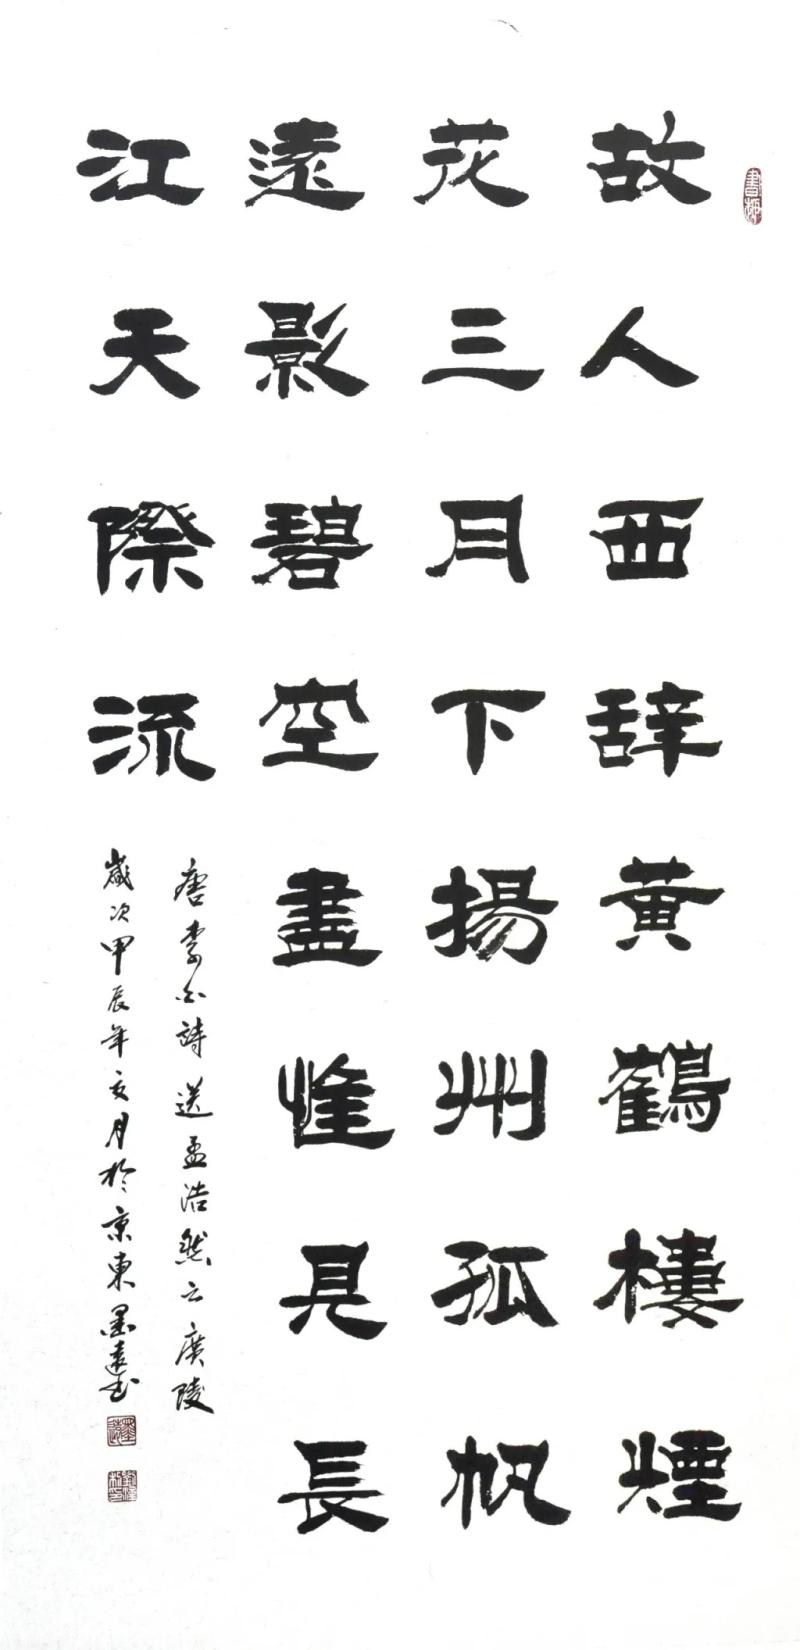 故人西辞黄鶴樓煙
花三月下揚州孤帆
遠影碧空盡惟見長
江天際流
唐李白詩送孟浩然之廣陵
歲次甲辰年亥月於京東墨遠書